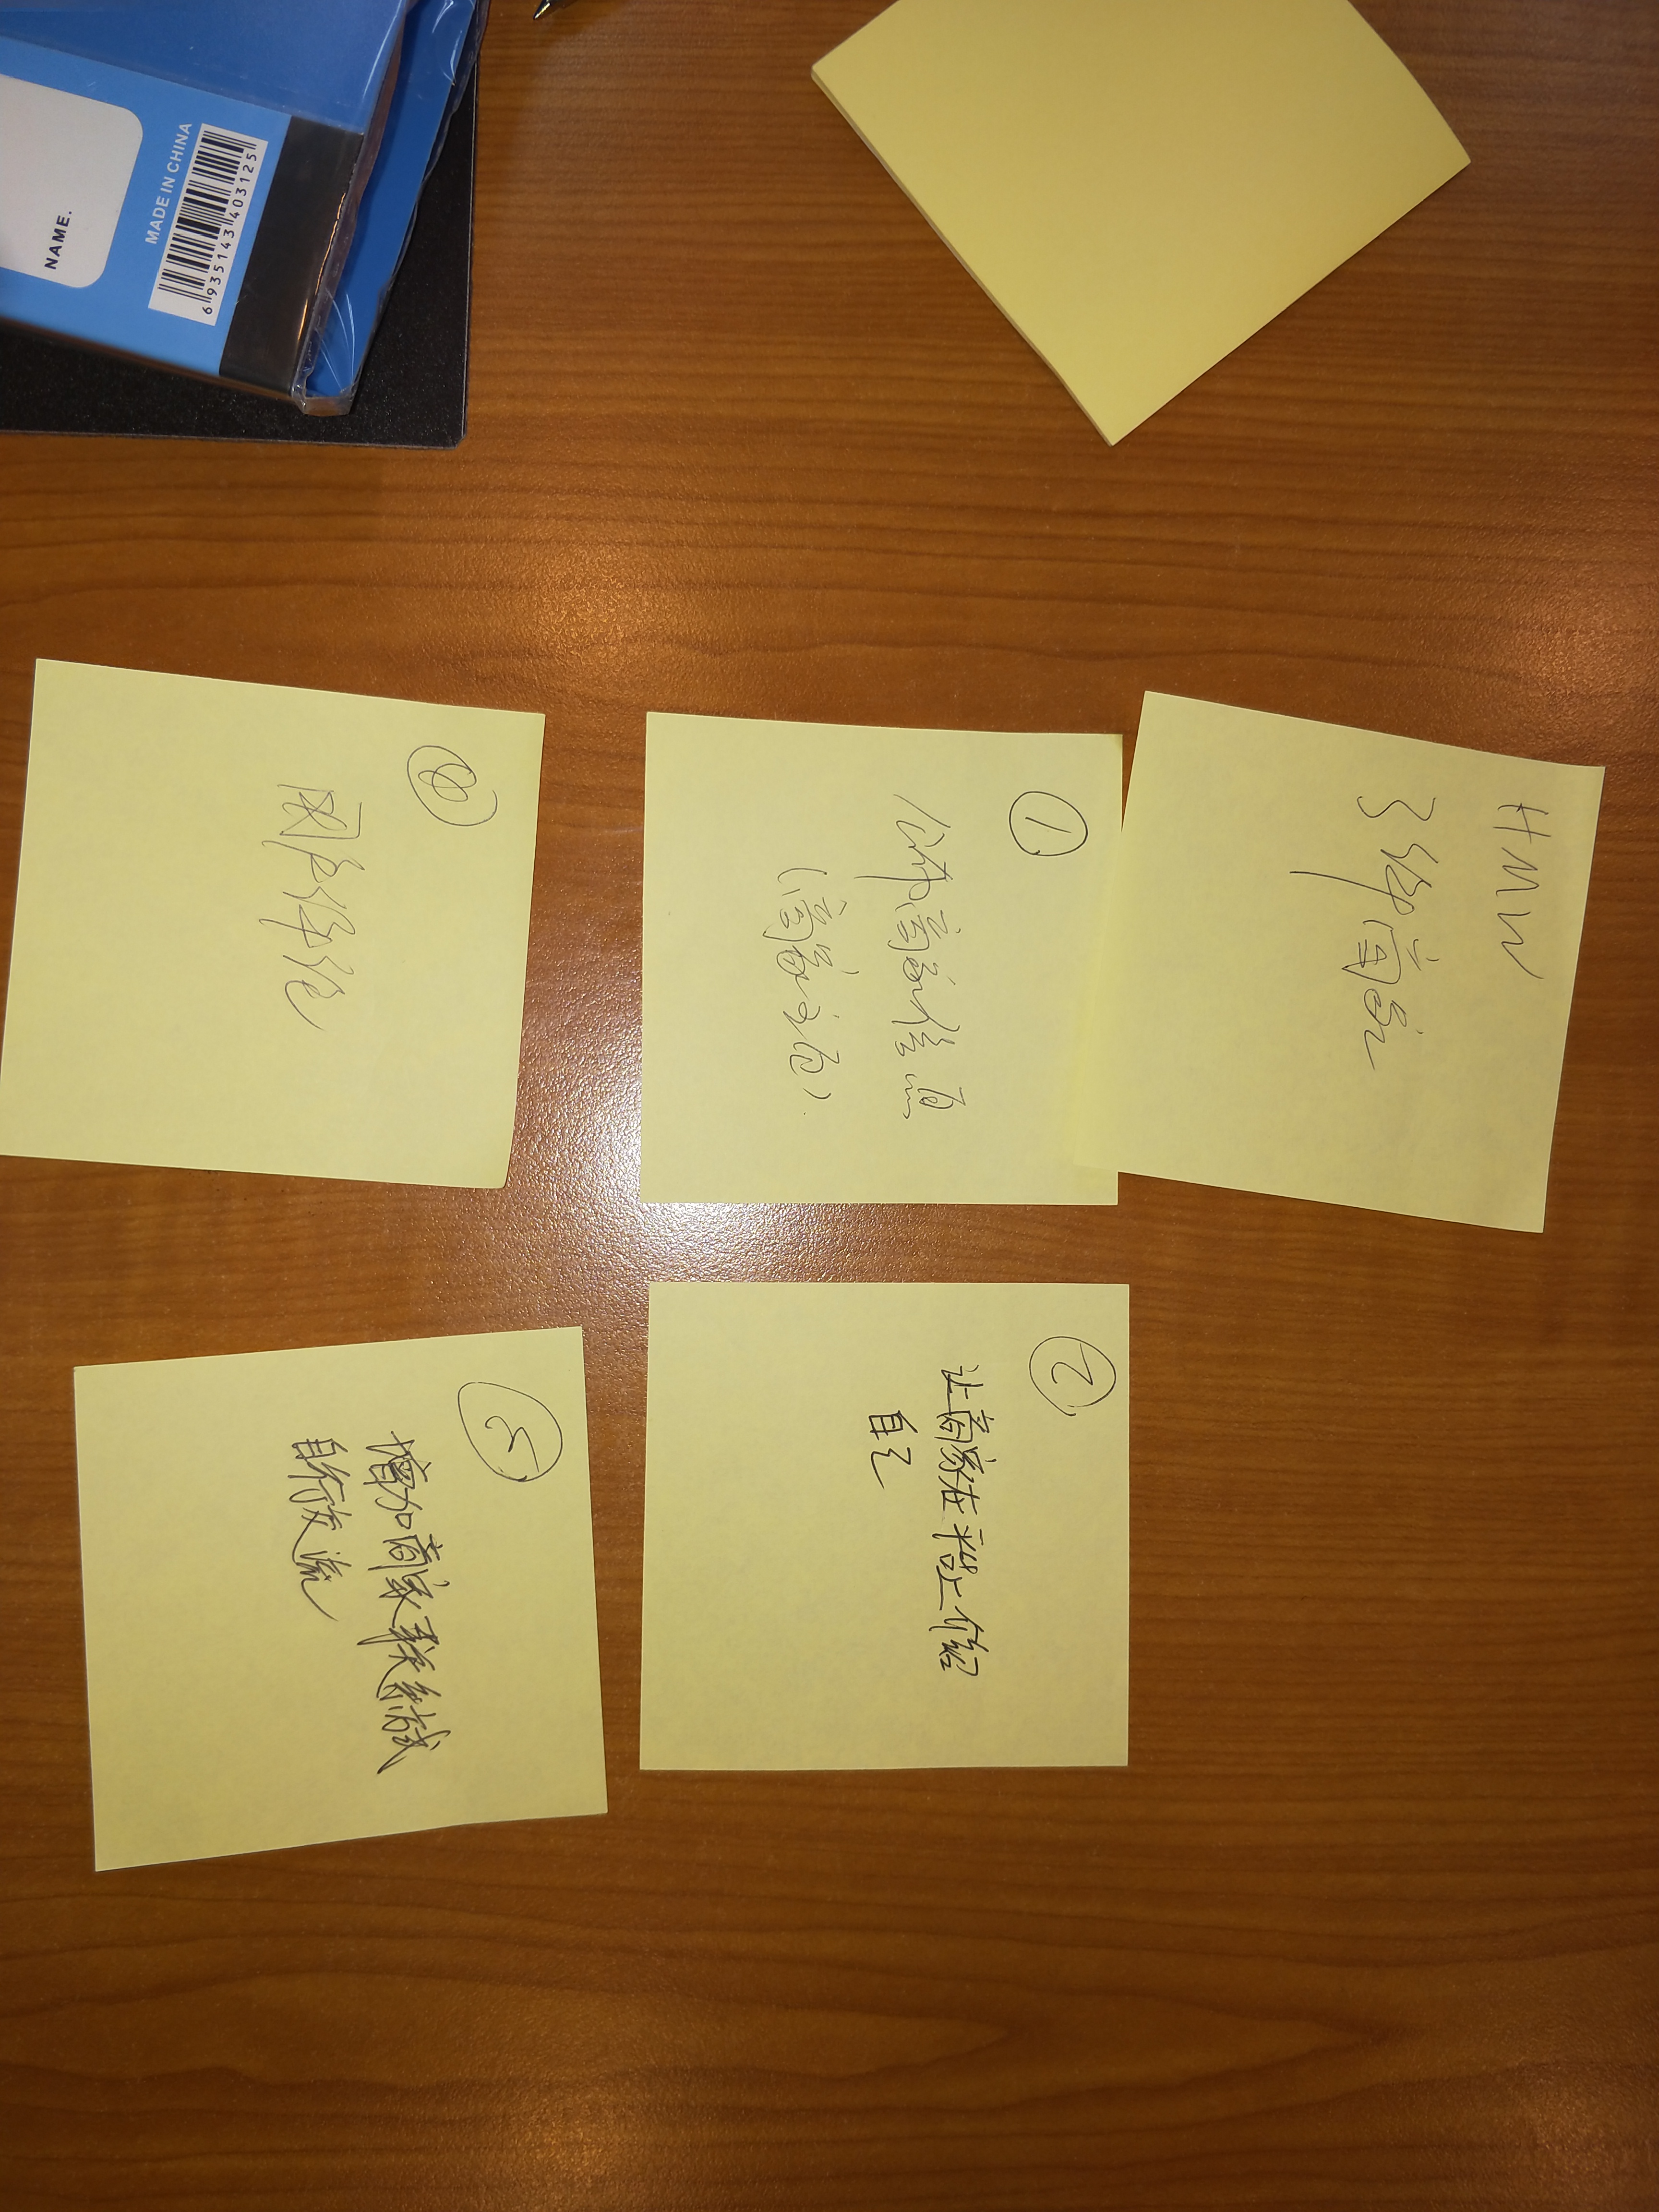 HMW
了解商家
①
公布商家信息
(商家主页)
②
让商家在平台上介绍
自己
④
用户评论
⑤
增加商家联系方式
自行交流
6935143403125
MADE IN CHINA
NAME.